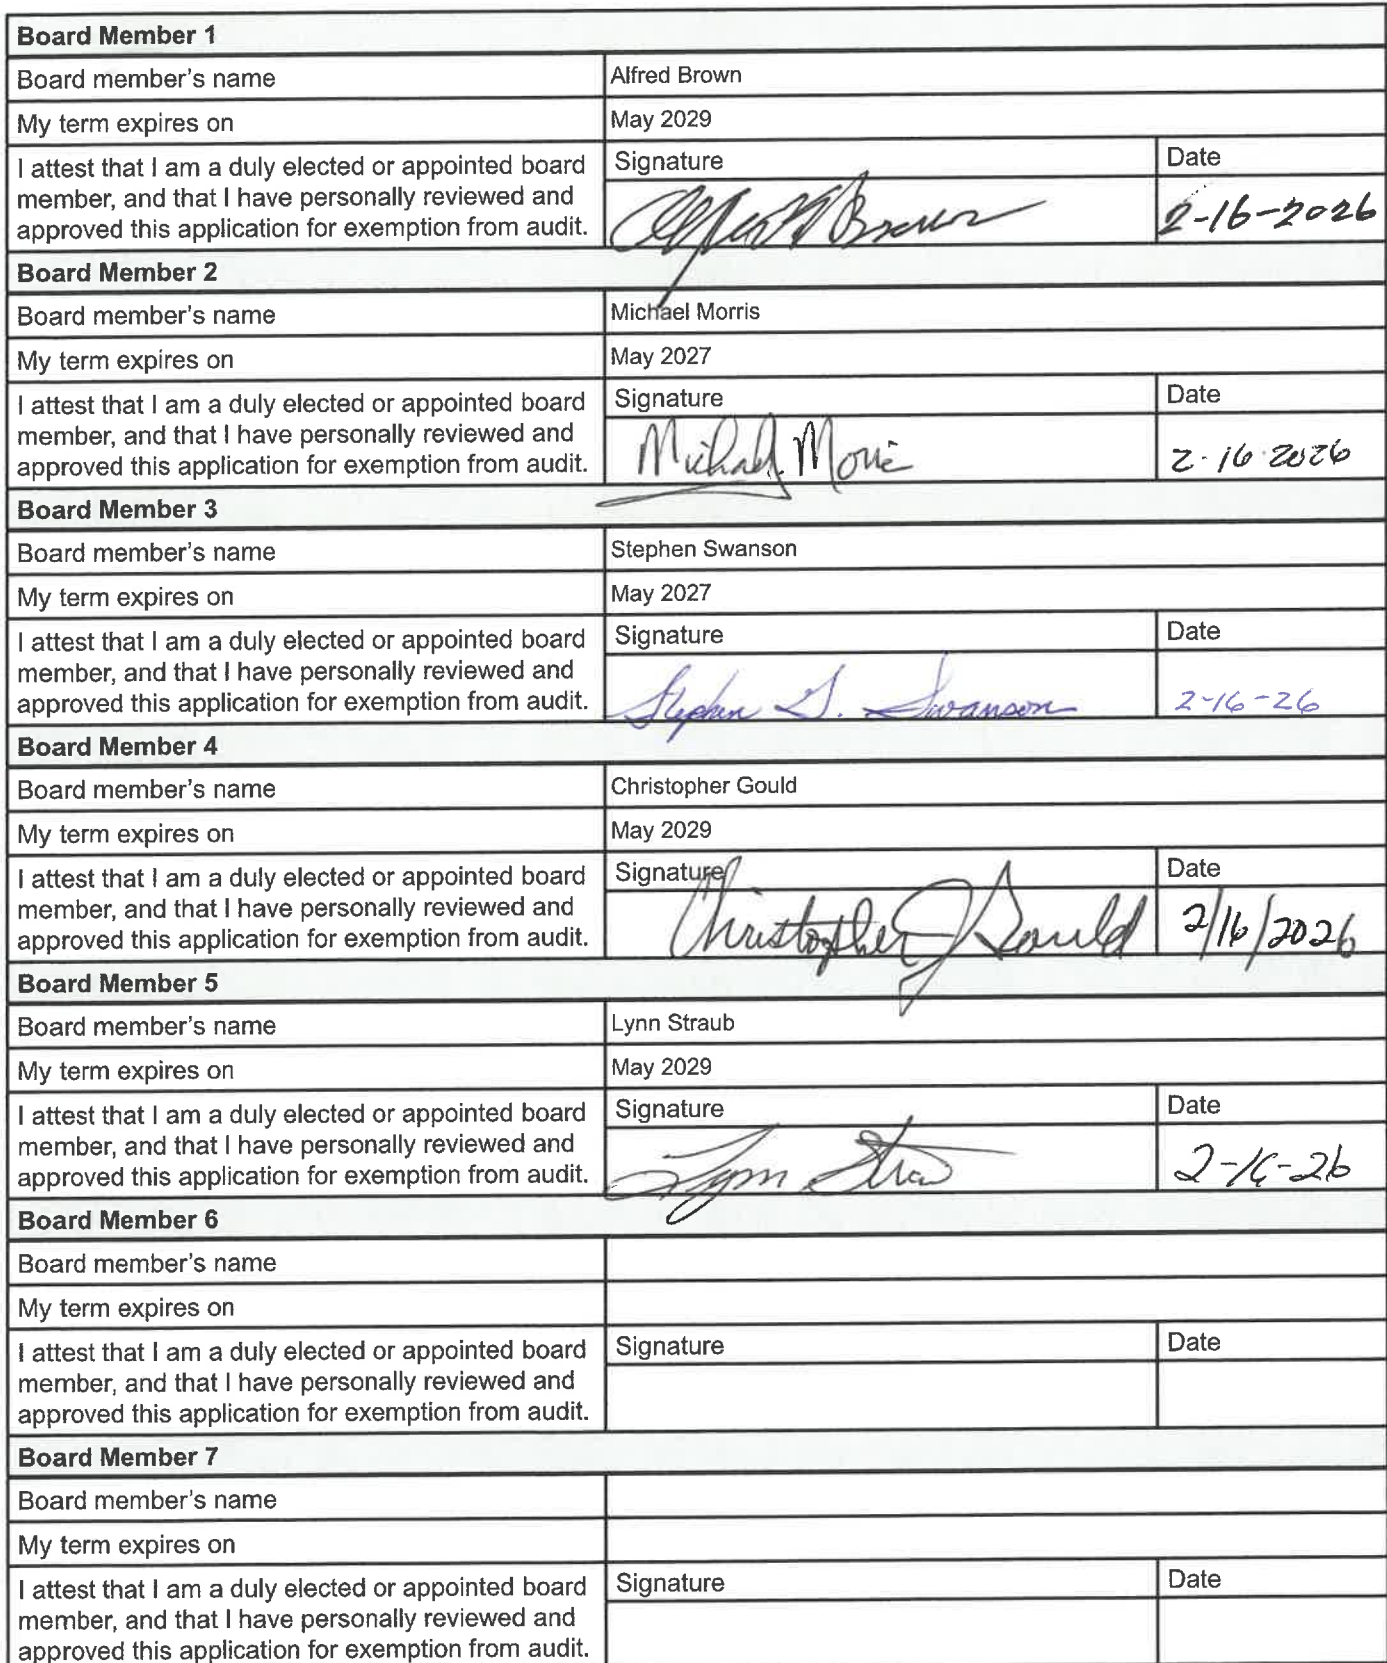 Board Member 1
Board member's name Alfred Brown
My term expires on May 2029
I attest that I am a duly elected or appointed board
member, and that I have personally reviewed and
approved this application for exemption from audit.
Signature Date
Alfred Brown 2-16-2026
Board Member 2
Board member's name Michael Morris
My term expires on May 2027
I attest that I am a duly elected or appointed board
member, and that I have personally reviewed and
approved this application for exemption from audit.
Signature Date
Michael Morris 2-16-2026
Board Member 3
Board member's name Stephen Swanson
My term expires on May 2027
I attest that I am a duly elected or appointed board
member, and that I have personally reviewed and
approved this application for exemption from audit.
Signature Date
Stephen G. Swanson 2-16-26
Board Member 4
Board member's name Christopher Gould
My term expires on May 2029
I attest that I am a duly elected or appointed board
member, and that I have personally reviewed and
approved this application for exemption from audit.
Signature Date
Christopher J Gould 2/16/2026
Board Member 5
Board member's name Lynn Straub
My term expires on May 2029
I attest that I am a duly elected or appointed board
member, and that I have personally reviewed and
approved this application for exemption from audit.
Signature Date
Lynn 2-16-26
Board Member 6
Board member's name
My term expires on
I attest that I am a duly elected or appointed board
member, and that I have personally reviewed and
approved this application for exemption from audit.
Signature Date
Board Member 7
Board member's name
My term expires on
I attest that I am a duly elected or appointed board
member, and that I have personally reviewed and
approved this application for exemption from audit.
Signature Date